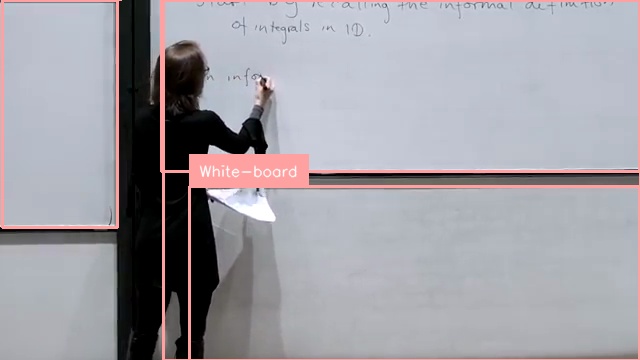 Start by recalling the informal definition
of integrals in 1D.
infor
White-board